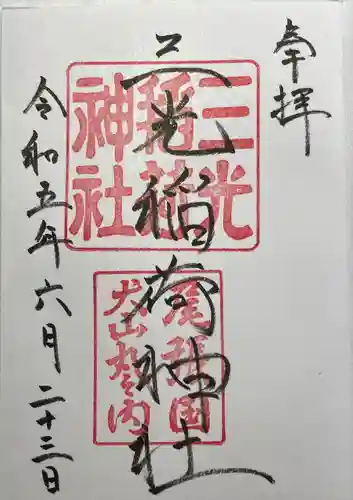 奉拝
三光稲荷神社
三光
稲荷
神社
尾張国
犬山丸の内
令和五年六月二十三日